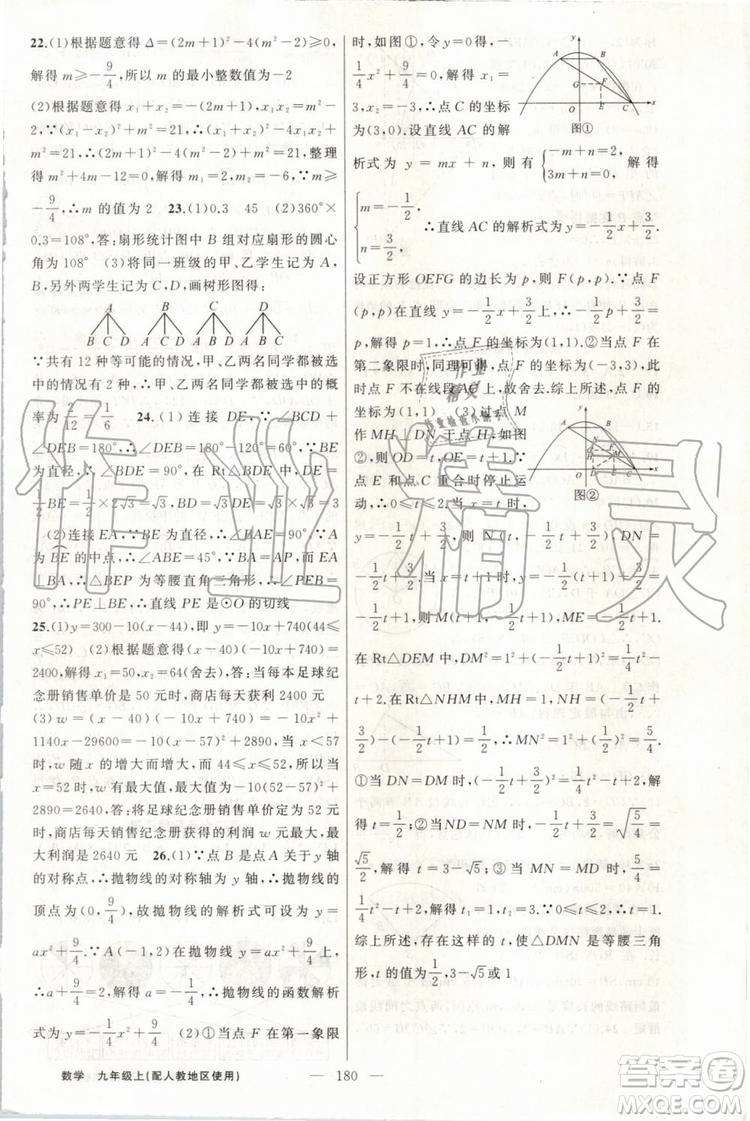 22.(1)根据题意得 Δ=(2m+1)²-4(m²-2)≥0,
解得 m≥-9/4,所以 m 的最小整数值为-2
(2)根据题意得 x₁+x₂=-(2m+1),x₁x₂=m²-
2,∵(x₁-x₂)²+m²=21,∴(x₁+x₂)²-4x₁x₂+
m²=21,∴(2m+1)²-4(m²-2)+m²=21,整理
得 m²+4m-12=0,解得 m₁=2,m₂=-6,∵m≥
-9/4,∴m 的值为 2 23.(1)0.3 45 (2)360°×
0.3=108°,答:扇形统计图中 B 组对应扇形的圆心
角为 108° (3)将同一班级的甲、乙学生记为 A、
B,另外两学生记为 C、D,画树形图得:
A B C D
B C D A C D A B D A B C
∵共有 12 种等可能的情况,甲、乙两名同学都被选
中的情况有 2 种,∴甲、乙两名同学都被选中的概
率为 2/12=1/6 24.(1)连接 DE,∵∠BCD+
∠DEB=180°,∴∠DEB=180°-120°=60°,∵
BE为直径,∴∠BDE=90°,在Rt△BDE中,DE=
1/2BE=1/2×2√3=√3,BD=√3DE=√3×√3=3
(2)连接 AE,∵BE 为直径,∴∠BAE=90°,∵A
是BE的中点,∴∠ABE=45°,∵BA=AP,而EA
⊥BA,∴△BEP 为等腰直角三角形,∴∠PEB=
90°,∴PE⊥BE,∴直线 PE 是⊙O 的切线
25.(1)y=300-10(x-44),即 y=-10x+740(44≤
x≤52) (2)根据题意得(x-40)(-10x+740)=
2400,解得 x₁=50,x₂=64(舍去),答:当每本足球纪
念册销售单价是 50 元时,商店每天获利 2400 元
(3)w=(x-40)(-10x+740)=-10x²+
1140x-29600=-10(x-57)²+2890,当 x<57
时,w 随 x 的增大而增大,而 44≤x≤52,所以当
x=52 时,w 有最大值,最大值为-10(52-57)²+
2890=2640,答:将足球纪念册销售单价定为 52 元
时,商店每天销售纪念册获得的利润 w 元最大,最
大利润是 2640 元 26.(1)∵点 B 是点 A 关于 y 轴
的对称点,∴抛物线的对称轴为 y 轴,∴抛物线的
顶点为(0,9/4),故抛物线的解析式可设为 y=
ax²+9/4.∵A(-1,2)在抛物线 y=ax²+9/4上,
∴a+9/4=2,解得 a=-1/4,∴抛物线的函数解析
式为 y=-1/4x²+9/4 (2)①当点 F 在第一象限
时,如图①,令 y=0 得,-
1/4x²+9/4=0,解得:x₁=
3,x₂=-3,∴点 C 的坐标
为(3,0).设直线 AC 的解
图①
析式为 y=mx+n,则有{-m+n=2,3m+n=0,解得
{m=-1/2,n=3/2,∴直线AC的解析式为 y=-1/2x+3/2.
设正方形 OEFG 的边长为 p,则 F(p,p).∵点 F
(p,p)在直线 y=-1/2x+3/2上,∴-1/2p+3/2=
p,解得 p=1,∴点 F 的坐标为(1,1).②当点 F 在
第二象限时,同理可得:点 F 的坐标为(-3,3),此
时点 F 不在线段AC上,故舍去.综上所述,点 F 的
坐标为(1,1) (3)过点 M
作 MH⊥DN 于点 H,如图
②,则 OD=t,OE=t+1.∵
点 E 和点 C 重合时停止运
动,∴0≤t≤2.当 x=t 时,
图②
y=-1/2t+3/2,则 N(t,-1/2t+3/2),DN=
-1/2t+3/2,当 x=t+1 时,y=-1/2(t+1)+3/2=
-1/2t+1,则 M(t+1,-1/2t+1),ME=-1/2t+1.
在 Rt△DEM 中,DM²=1²+(-1/2t+1)²=1/4t²-
t+2.在 Rt△NHM 中,MH=1,NH=(-1/2t+
3/2)-(-1/2t+1)=1/2,∴MN²=1²+(1/2)²=5/4.
①当 DN=DM 时,(-1/2t+3/2)²=1/4t²-t+2,解
得 t=1/2;②当 ND=NM 时,-1/2t+3/2=√(5/4)=
√5/2,解得 t=3-√5;③当 MN=MD 时,5/4=
1/4t²-t+2,解得 t₁=1,t₂=3,∵0≤t≤2,∴t=1.
综上所述,存在这样的 t,使△DMN 是等腰三角
形,t 的值为1/2,3-√5或1
数学 九年级上(配人教地区使用) — 180 —
作业精灵
答案圈
MXQE.COM